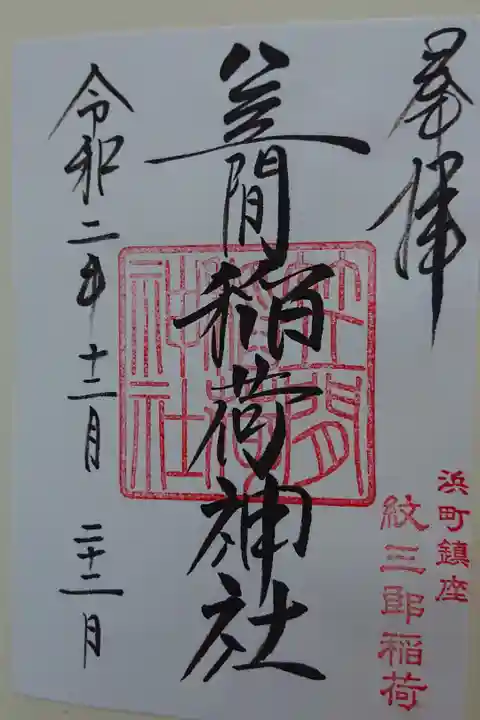 奉拝
浜町鎮座
紋三郎稲荷
笠間稲荷神社
笠間
稲荷
神社
令和二年十二月二十二日